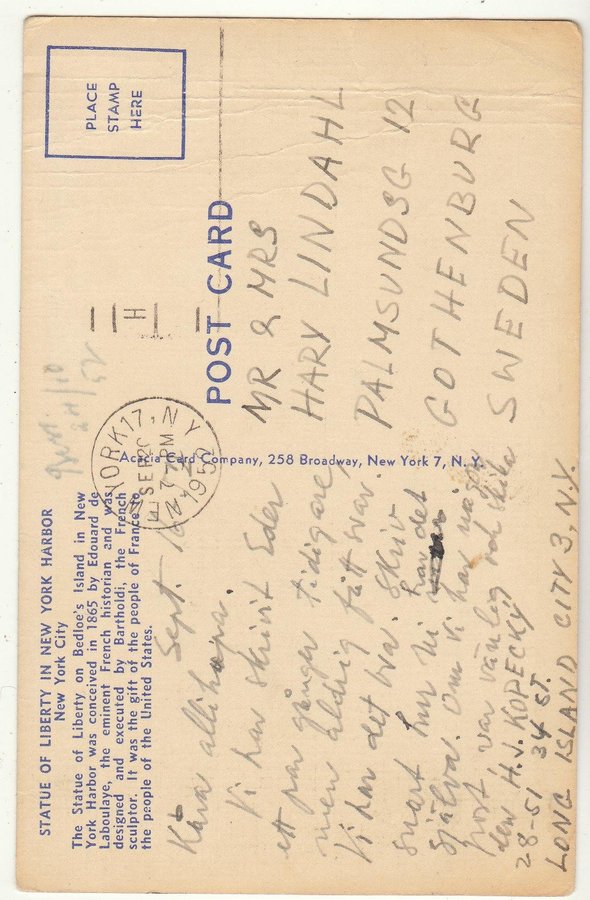 STATUE OF LIBERTY IN NEW YORK HARBOR
New York City
The Statue of Liberty on Bedloe's Island in New
York Harbor was conceived in 1865 by Edouard de
Laboulaye, the eminent French historian and was
designed and executed by Bartholdi, the French
sculptor. It was the gift of the people of France to
the people of the United States.
Sept. 18
Kära allihopa.
Vi har skrivit Eder
ett par gånger tidigare,
men aldrig fått svar.
Vi har det bra. Skriv
snart hur Ni har det
själva. Om vi har någon
post var vänlig och skicka
den H.J. KOPECKY
28-51 34 ST.
LONG ISLAND CITY 3, N.Y.
Acacia Card Company, 258 Broadway, New York 7, N. Y.
POST CARD
PLACE
STAMP
HERE
YORK 17, N.Y.
SEP 20
7 PM
H
24/10
52
MR & MRS
HARY LINDAHL
PALMSUNDSG 12
GOTHENBURG
SWEDEN